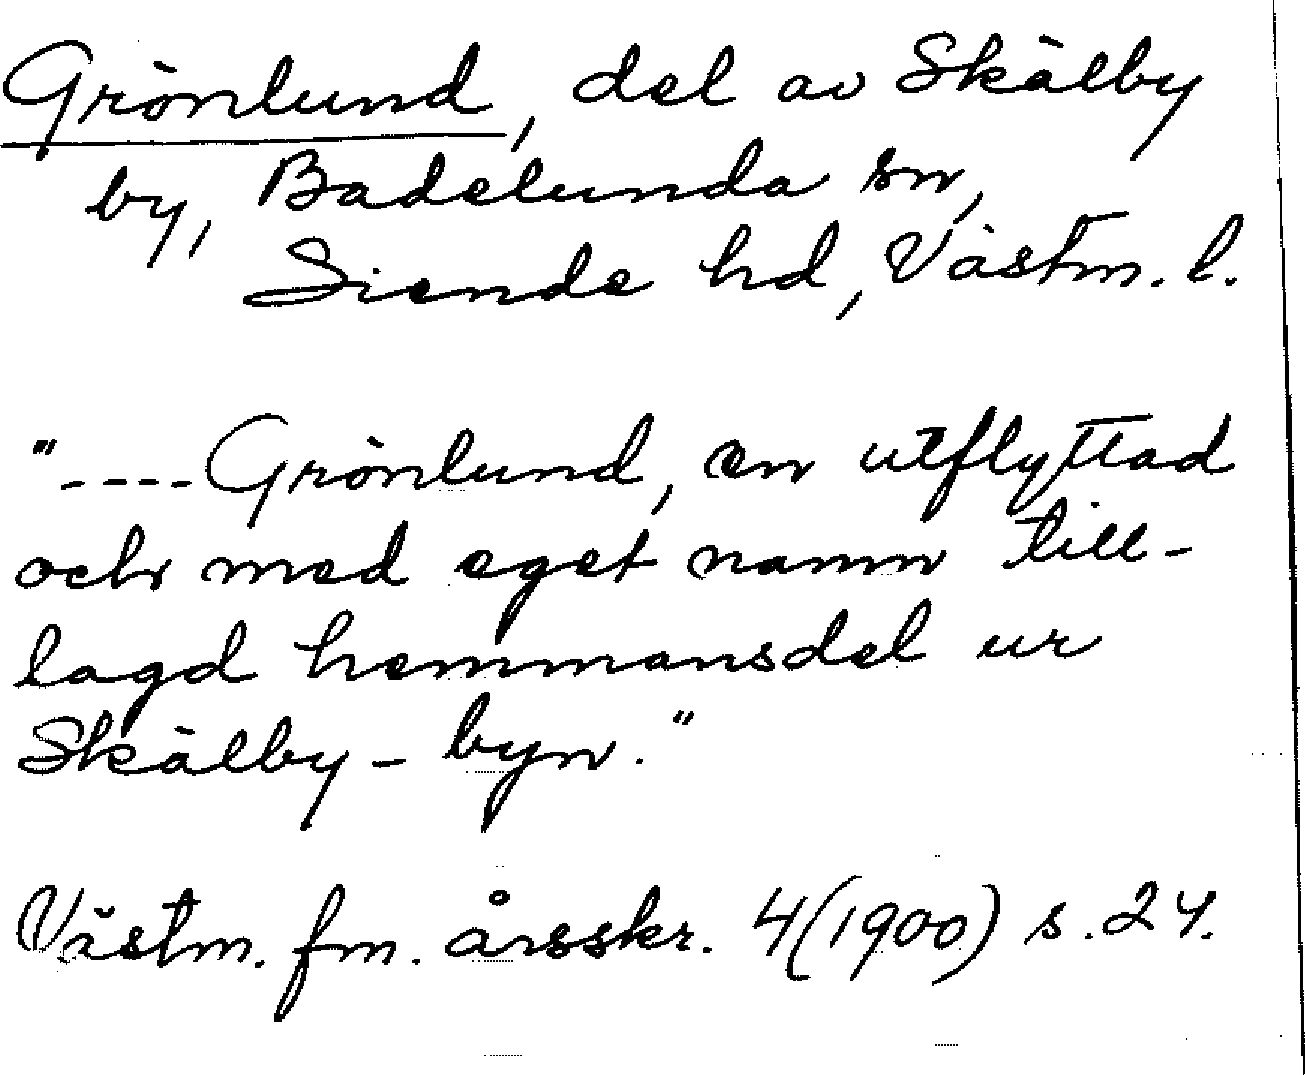 Grönlund, del av Skälby
by, Badelunda sn,
Siende hd, Västm. l.
"----Grönlund, en utflyttad
och med eget namn till-
lagd hemmansdel ur
Skälby-byn."
Västm. fm. årsskr. 4(1900) s. 24.